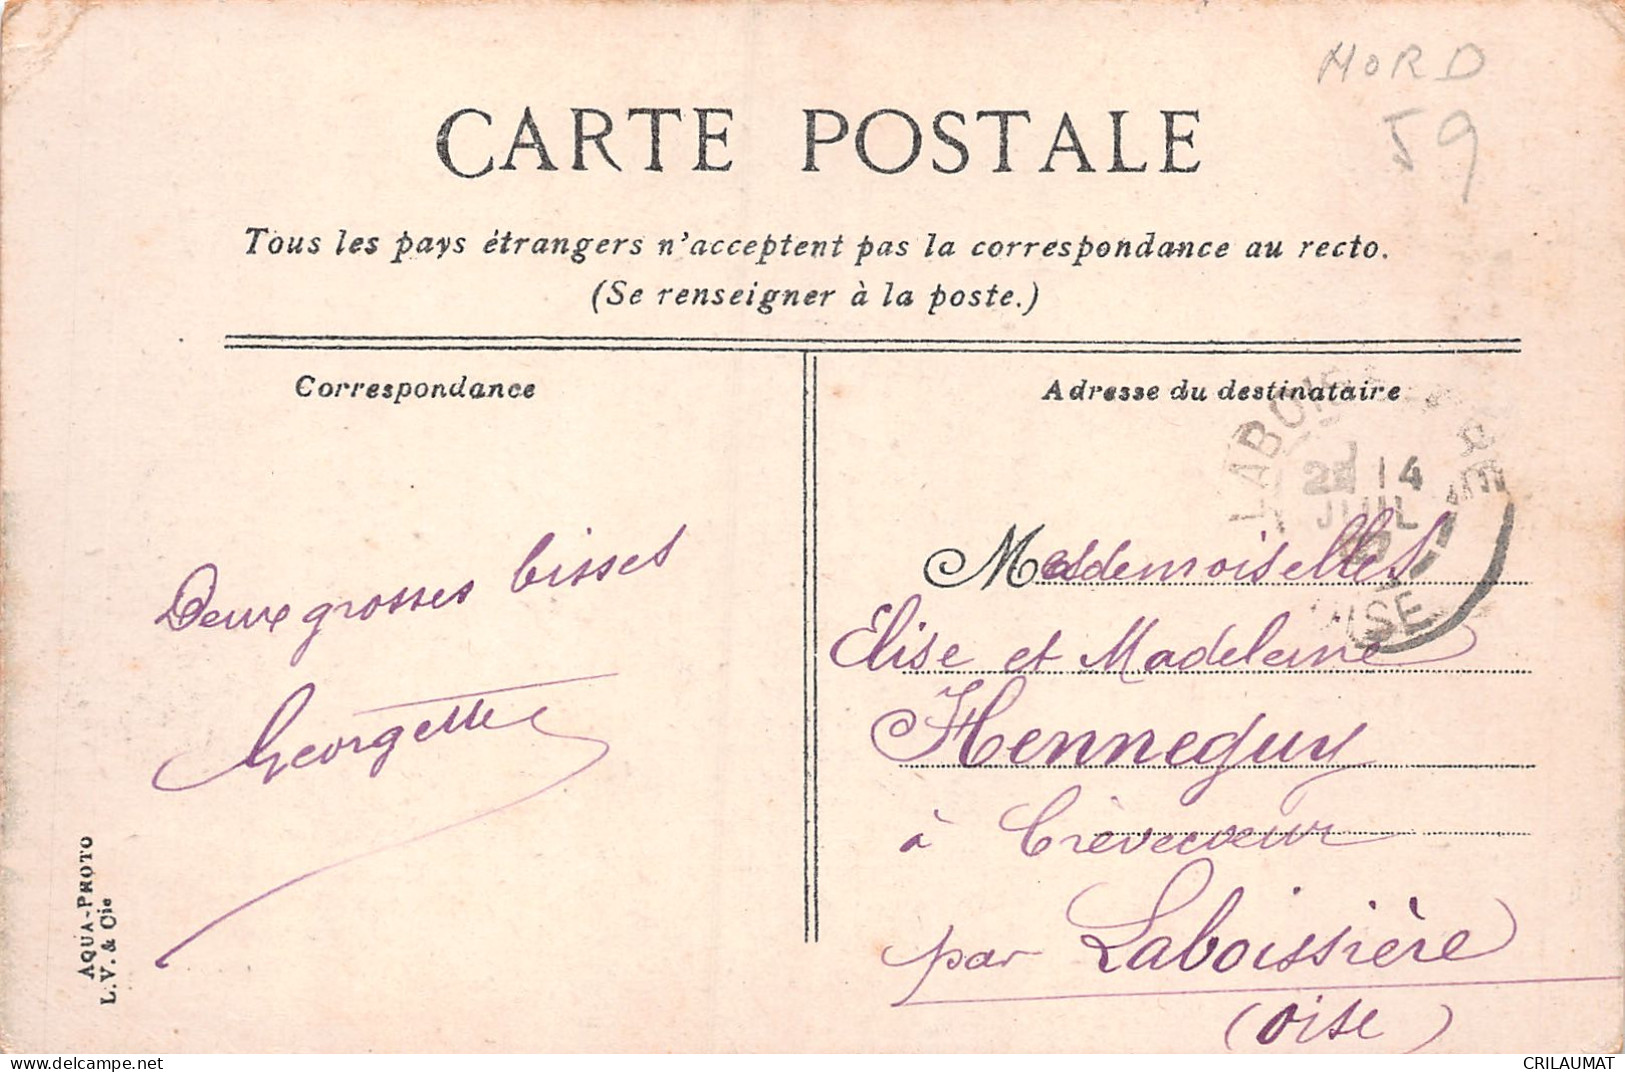 NORD
59
CARTE POSTALE
Tous les pays étrangers n'acceptent pas la correspondance au recto.
(Se renseigner à la poste.)
Correspondance
Adresse du destinataire
Deux grosses bisses
Georgette
Mesdemoiselles
Elise et Madeleine
Henneguy
à Crèvecoeur
par Laboissière
(Oise)
14
JUIL
OISE
AQUA-PHOTO
L.V. & Cie
www.delcampe.net
CRILAUMAT